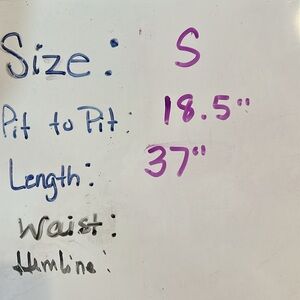 Size: S
Pit to Pit: 18.5"
Length: 37"
Waist:
Hemline: